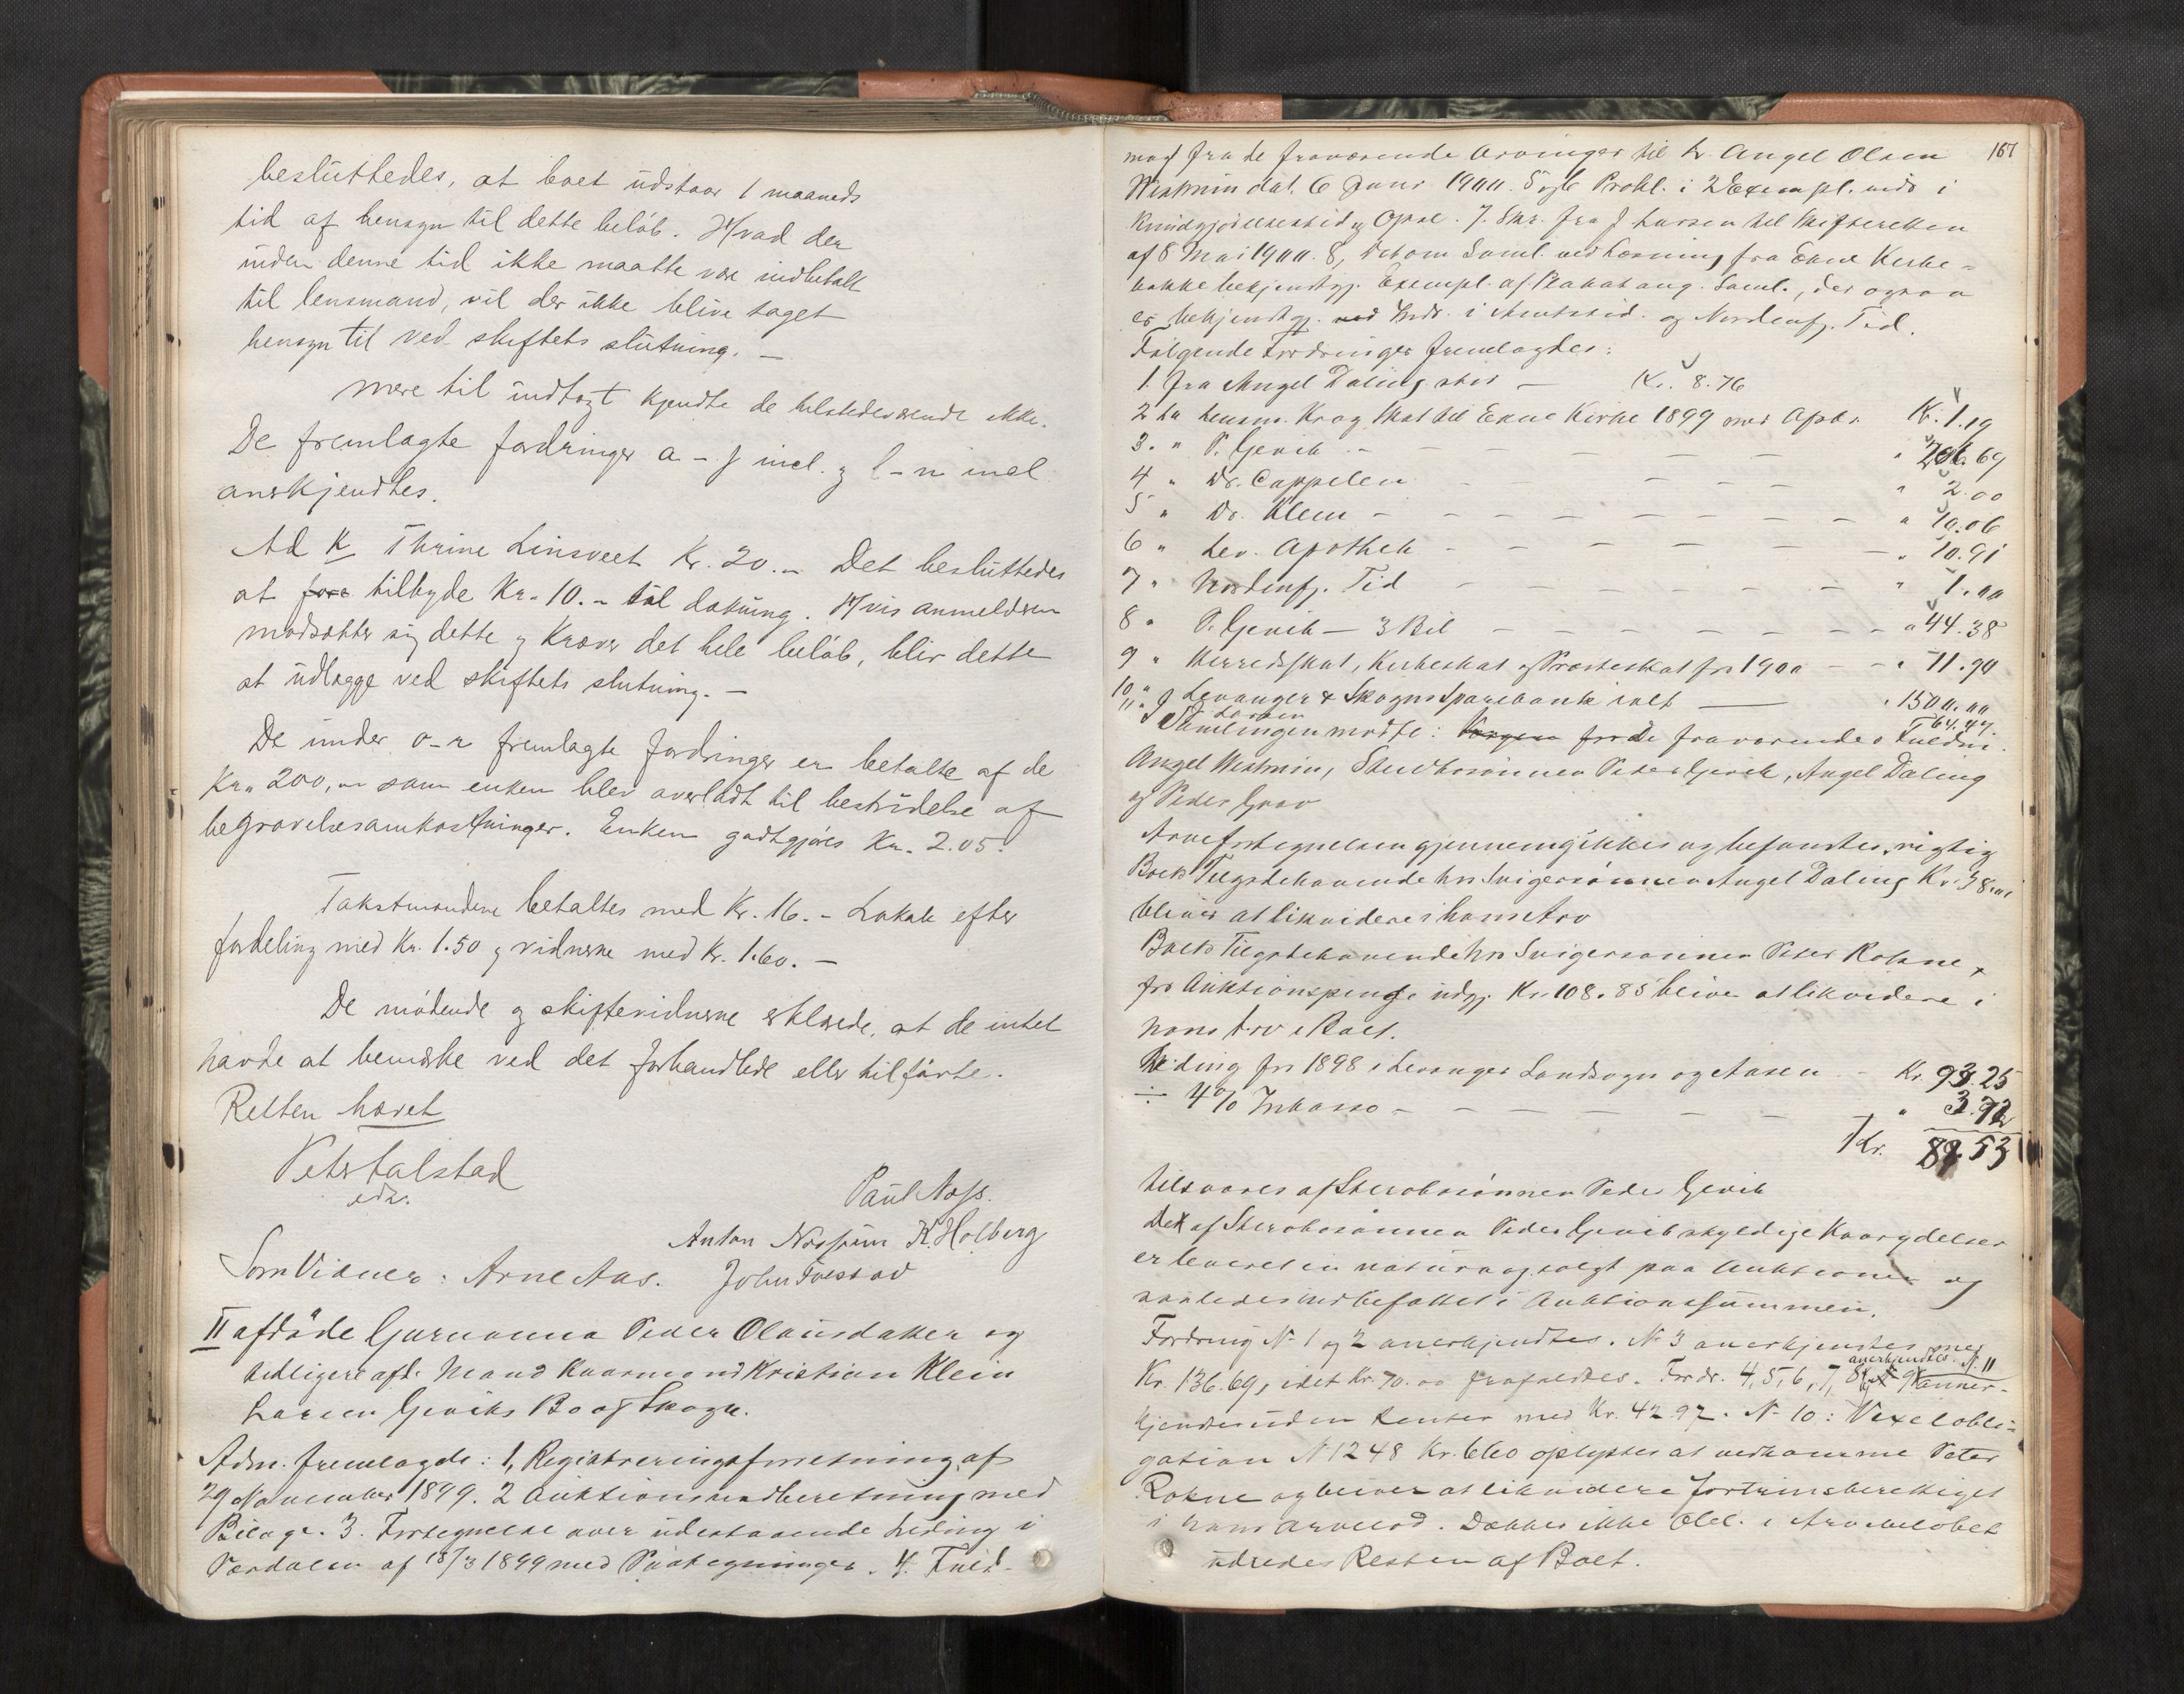 besluttedes, at boet udstaar 1 maaneds
tid af hensyn til dette beløb. Hvad der
inden denne tid ikke maatte vær indbetalt
til lensmand, vil der ikke blive taget
hensyn til ved skiftets slutning. —
Mere til indtægt kjendte de tilstedeværende ikke.
De fremlagte fordringer a - j incl. og l - n incl
anerkjendtes.
Ad K Thrine Linsveet Kr. 20.- Det besluttedes
at tilbyde Kr. 10.- til dækning. Hvis anmelderen
modsætter sig dette og kræver det hele beløb, blir dette
at udlægge ved skiftets slutning. —
De under o-r fremlagte fordringer er betalte af de
Kr. 200,- som enken blev overladt til bestridelse af
begravelsesomkostninger. Enken godtgjøres Kr. 2.05.
Takstmændene betaltes med Kr. 16.- Lokale efter
fordeling med Kr. 1.50 og vidnerne med Kr. 1.60. —
De mødende og skiftevidnerne erklærede, at de intet
havde at bemærke ved det forhandlede eller tilførte.
Retten hævet
Peter Falstad
edv.
Paul Næss.
Anton Nossum K. Holberg
Som Vidner: Arne Aas. John Tvestad
II afdøde Gurianna Peder Olausdatter og
tidligere afd. Mand Kaarmand Kristian Klein
Larsen Gjeviks Bo af Skogn.
Adm. fremlagde: 1, Registreringsforretning af
29 November 1899. 2 Auktionsindberetning med
Bilage. 3. Fortegnelse over udestaaende Leding i
Værdalen af 18/3 1899 med Paategninger. 4. Fuld-
167
magt fra de fraværende Arvinger til Hr. Angel Olsen
Westmin dat. 6 Juni 1900. 5 og 6 Prokl. i 2 Exempl. inds i
Kundgjørelsestid og Opsl. 7. Skr. fra J Larsen til Skifteretten
af 8 Mai 1900. 8, Det om Saml. ved Læsning fra Ekne Kirke-
bakke bekjendtgj. Exempl. af Plakat ang. Saml., der ogsaa
er bekjendtgj. ved Inds. i Amtstid. og Nordenfj. Tid.
Følgende Fordringer fremlagdes:
1. fra Angel Daling stor — Kr. 8.76
2 fra Lensm. Krog Skat til Ekne Kirke 1899 med Kr. 1.19
3. " P. Gjevik - — — — — — " 206.69
4 " Dr. Cappelen - — — — — " 2.00
5 " Dr. Klem - — — — — — — " 10.06
6 " Lev. Apothek - — — — — — " 10.91
7 " Nordenfj. Tid — — — — — — " 1.00
8 " P. Gjevik — 3 Bil — — — — — — " 44.38
9 " Herredsskat, Kirkeskat og Præsteskat for 1900 — — " 11.90
10 " Levanger & Skogns Sparebank ialt — " 1500.00
11 " J Larsen 64.47.
I Samlingen mødte: for de fraværende Fuldm.
Angel Westmin, Stervbosønnen Peder Gjevik, Angel Daling
og Peder Grav
Arvefortegnelsen gjennemgikkes og befandtes rigtig
Boets Tilgodehavende hos Svigersønnen Angel Daling Kr. 38.00
bliver at likvidere i hans Arv
Boets Tilgodehavende hos Svigersønnen Peter Rokne,
for Auktionspenge udgj. Kr. 108.85 bliver at likvidere i
hans Arv i Boet.
Leding for 1898 i Levanger Landsogn og Aasen - Kr. 93.25
÷ 4% Inkasso - — — — — — " 3.72
Kr. 89.53
tilsvares af Stervbosønnen Peder Gjevik
Det af Stervbosønnen Peder Gjevik skyldige Kaarydelser
er leveret in natura og solgt paa Auktionen og
saaledes indbefattet i Auktionssummen.
Fordring N. 1 og 2 anerkjendtes. N. 3 anerkjendtes med
Kr. 136.69, idet Kr. 70.00 frafaldtes. Fordr. 4, 5, 6, 7, 8 og 9 anerkjendtes. N. 11 anner-
kjendtes uden Renter med Kr. 42.97. N. 10: Vexelobli-
gation N 1248 Kr. 660 oplystes at vedkomme Peter
Rokne og bliver at likvidere fortrinsberettiget
i hans Arvelod. Dækkes ikke Obl. i Arvebeløbet
udredes Resten af Boet.